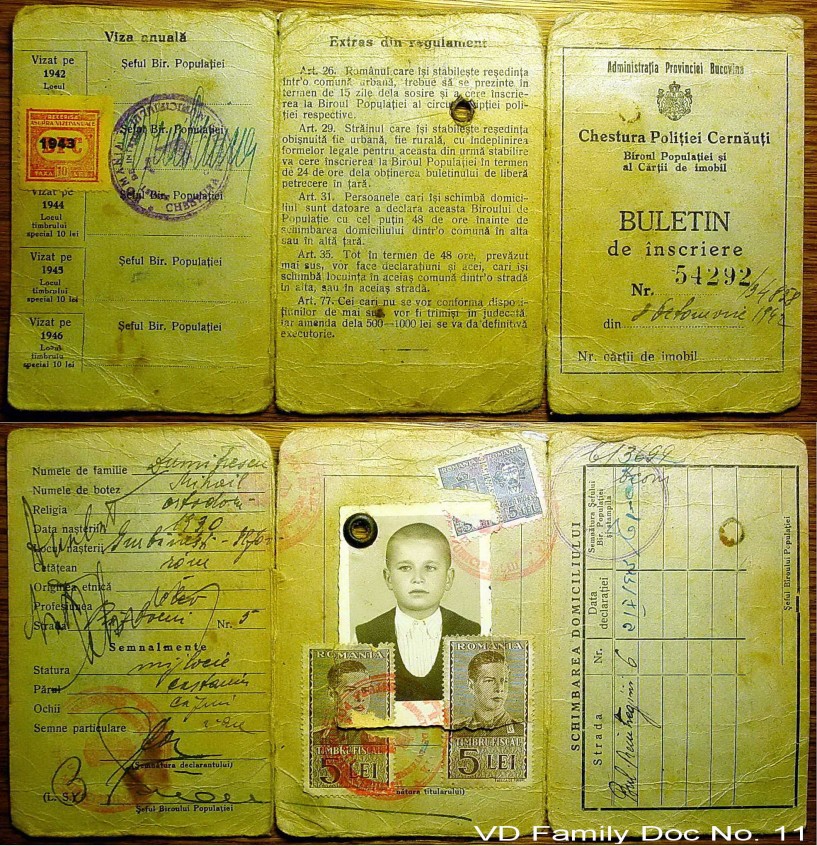 Viza anuală
Vizat pe
1942
Locul
Șeful Bir. Populației
1943
Șeful Bir. Populației
Vizat pe
1944
Locul
timbrului
special 10 lei
Șeful Bir. Populației
Vizat pe
1945
Locul
timbrului
special 10 lei
Șeful Bir. Populației
Vizat pe
1946
Locul
timbrului
special 10 lei
Șeful Bir. Populației
Extras din regulament
Art. 26. Românul care își stabilește reședința
într'o comună urbană, trebue să se prezinte în
termen de 15 zile dela sosire și a cere înscrie-
rea la Biroul Populației al
respective.
Art. 29. Străinul care își stabilește reședința
obișnuită fie urbană, fie rurală, cu îndeplinirea
formelor legale pentru aceasta din urmă stabilire
va cere înscrierea la Biroul Populației în termen
de 24 de ore dela obținerea buletinului de liberă
petrecere în țară.
Art. 31. Persoanele cari își schimbă domici-
liul sunt datoare a declara aceasta Biroului de
Populație cu cel puțin 48 de ore înainte de
schimbarea domiciliului dintr'o comună în alta
sau în altă țară.
Art. 35. Tot în termen de 48 ore, prevăzut
mai sus, vor face declarațiuni și acei, cari își
schimbă locuința în aceiaș comună dintr'o stradă
în alta, sau în aceiaș stradă.
Art. 77. Cei cari nu se vor conforma dispozi-
țiunilor de mai sus vor fi trimiși în judecată,
iar amenda dela 500—1000 lei se va da definitivă
executorie.
Administrația Provinciei Bucovina
Chestura Poliției Cernăuți
Biroul Populației și
al Cărții de imobil
BULETIN
de înscriere
Nr. 54292
din 8 Octomvrie 1942
Nr. cărții de imobil
Numele de familie Dumitrescu
Numele de botez Mihail
Religia ortodox
Data nașterii 1930
Locul nașterii
Cetățean rom
Originea etnică
Profesiunea elev
Strada Nr. 5
Semnalmente
Statura mijlocie
Părul castaniu
Ochii căprui
Semne particulare
(Semnătura declarantului)
(L. S.)
Șeful Biroului Populației
ROMANIA
5 LEI
ROMANIA
TIMBRU FISCAL
5 LEI
ROMANIA
TIMBRU FISCAL
5 LEI
titularului)
SCHIMBAREA DOMICILIULUI
Strada
Nr.
Data
declarației
Semnătura Șefului
Bir. Populației
și ștampila
6
Șeful Biroului Populației
VD Family Doc No. 11